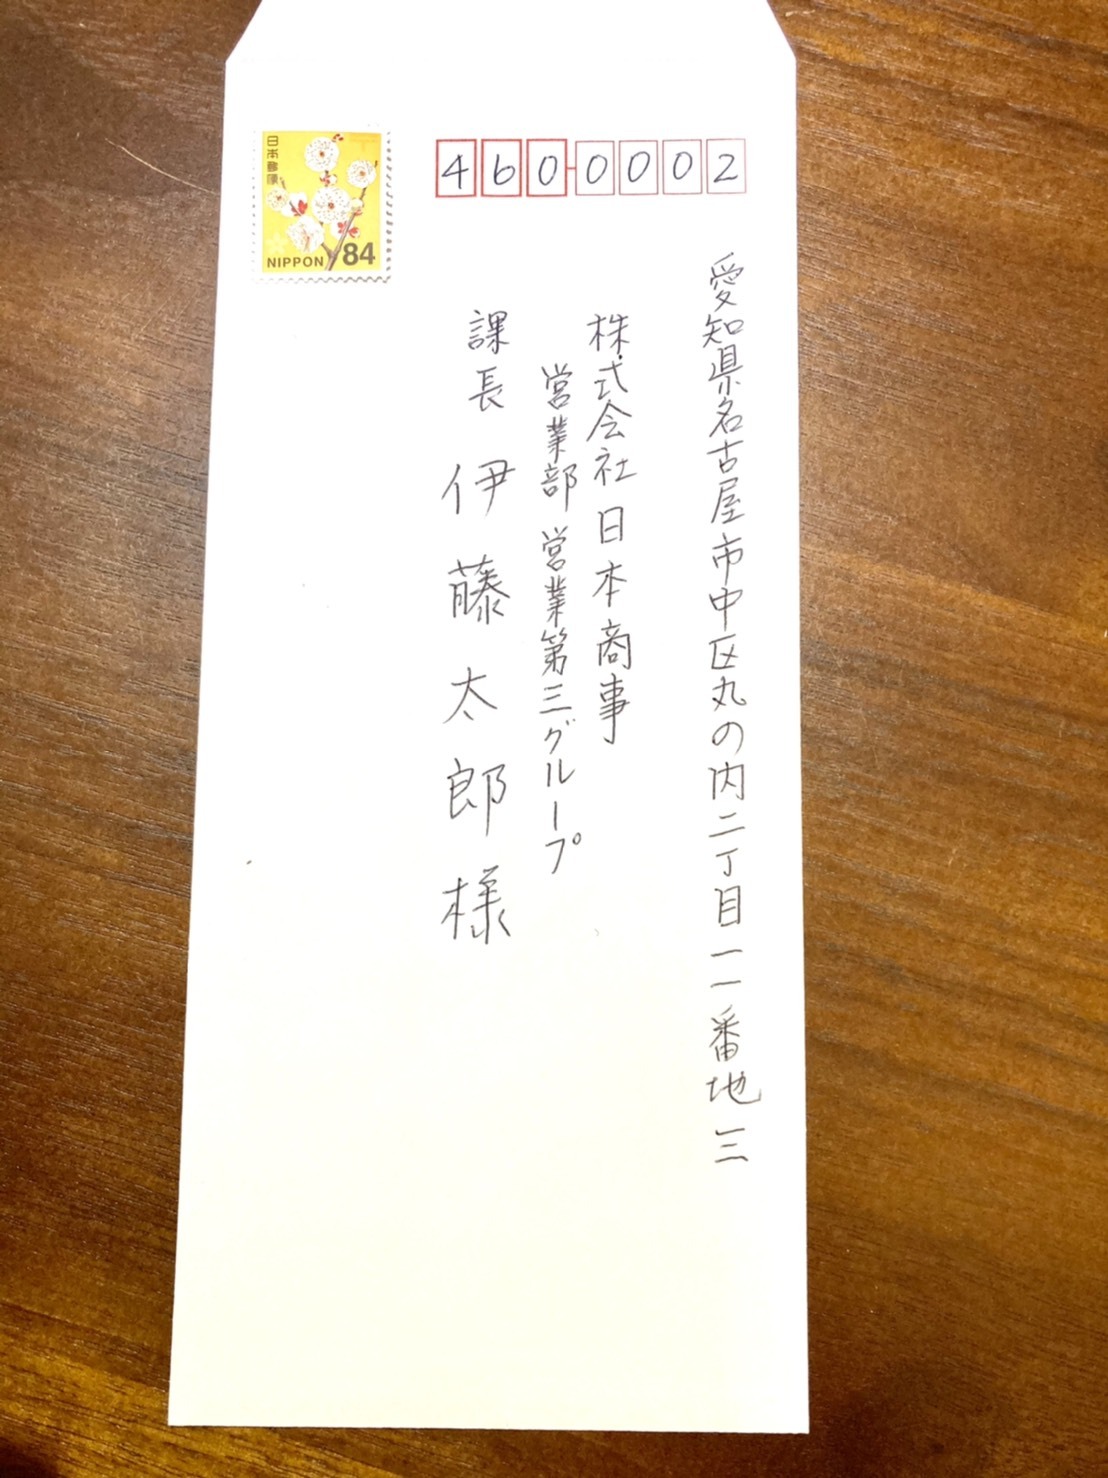 日本郵便
NIPPON 84
460-0002
愛知県名古屋市中区丸の内二丁目一一番地三
株式会社 日本商事
営業部 営業第三グループ
課長 伊藤太郎様